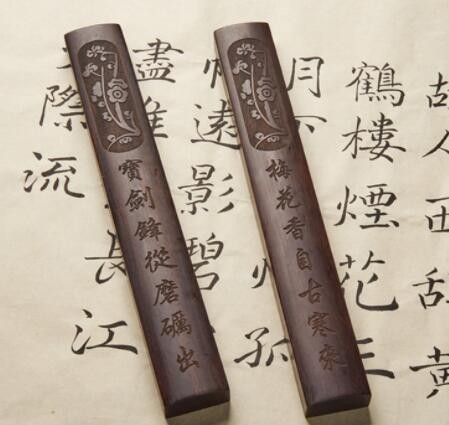 寶劍鋒從磨礪出
梅花香自古寒來
故人西辞黄
鶴樓煙花三
月下州孤
帆遠影碧
盡唯長江
際流